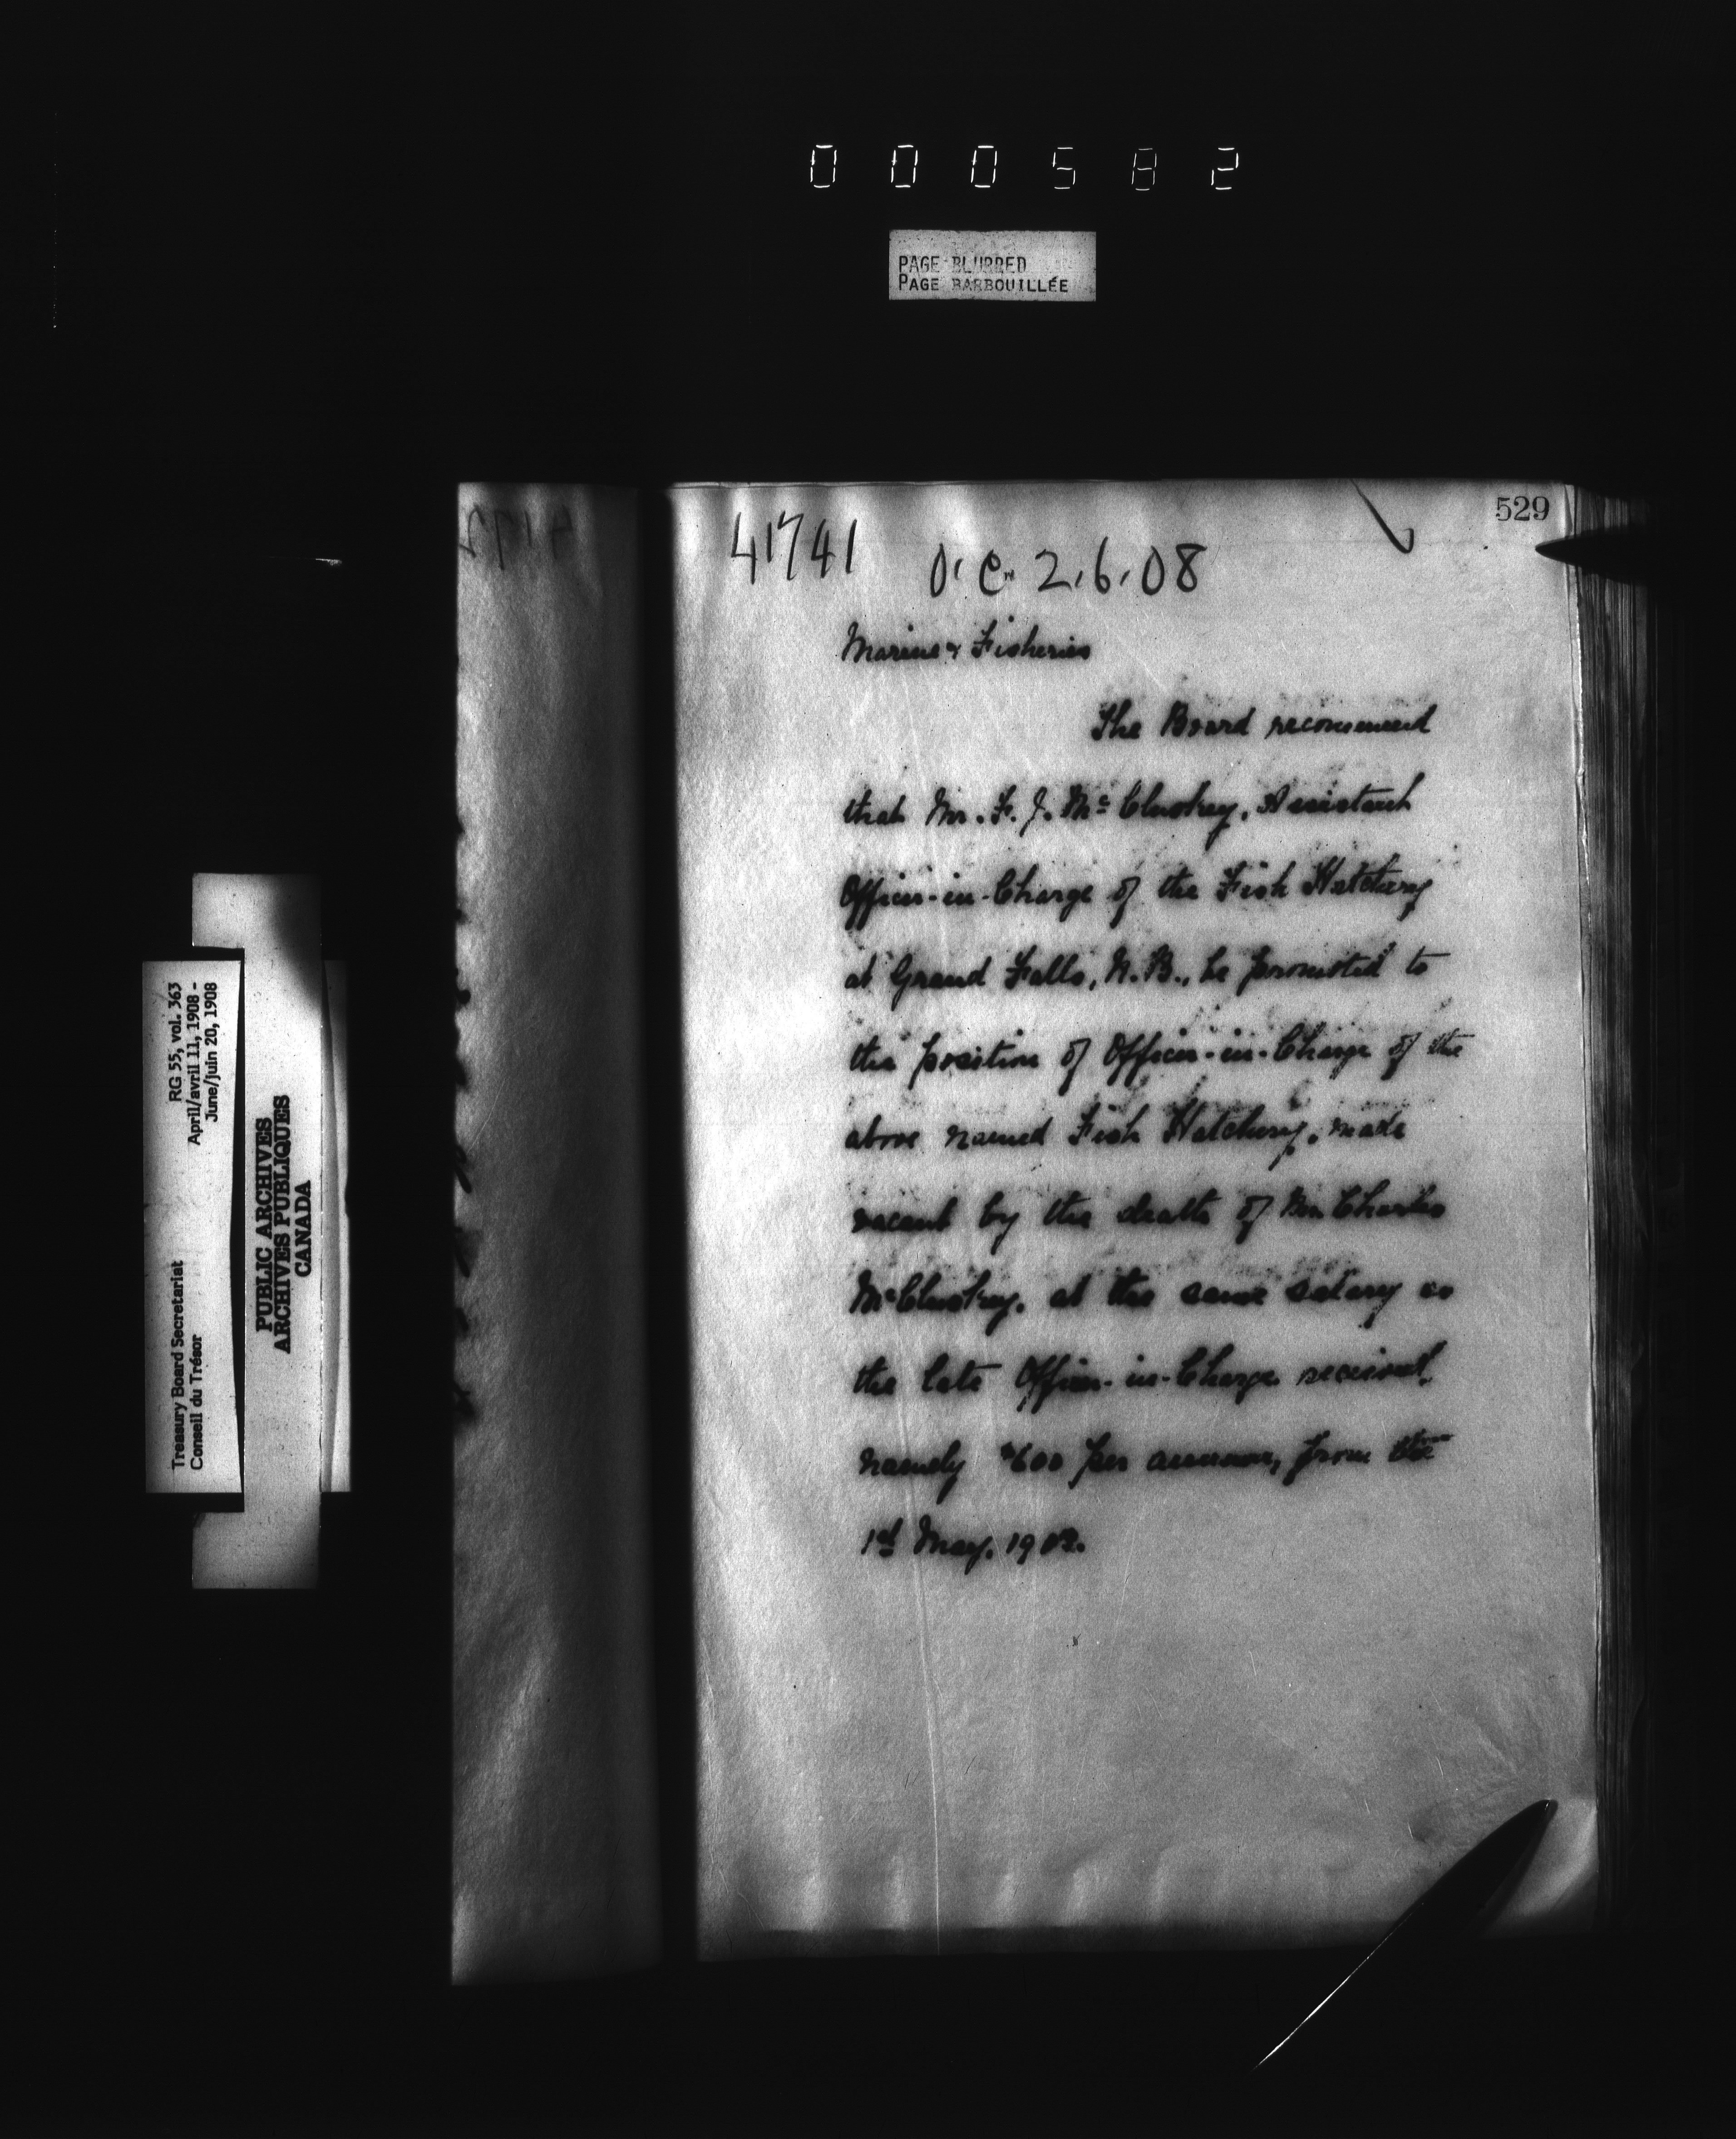 000582
PAGE BLURRED
PAGE BARBOUILLÉE
529
41741 O.C. 2.6.08
Marine & Fisheries
The Board recommend
that Mr. F. J. McCluskey, Assistant
Officer-in-Charge of the Fish Hatchery
at Grand Falls, N.B., be promoted to
the position of Officer-in-Charge of the
above named Fish Hatchery, made
vacant by the death of Mr. Charles
McCluskey, at the same salary as
the late Officer-in-Charge received,
namely $600 per annum, from the
1st May, 1908.
RG 55, vol. 363
April/avril 11, 1908 -
June/juin 20, 1908
Treasury Board Secretariat
Conseil du Trésor
PUBLIC ARCHIVES
ARCHIVES PUBLIQUES
CANADA